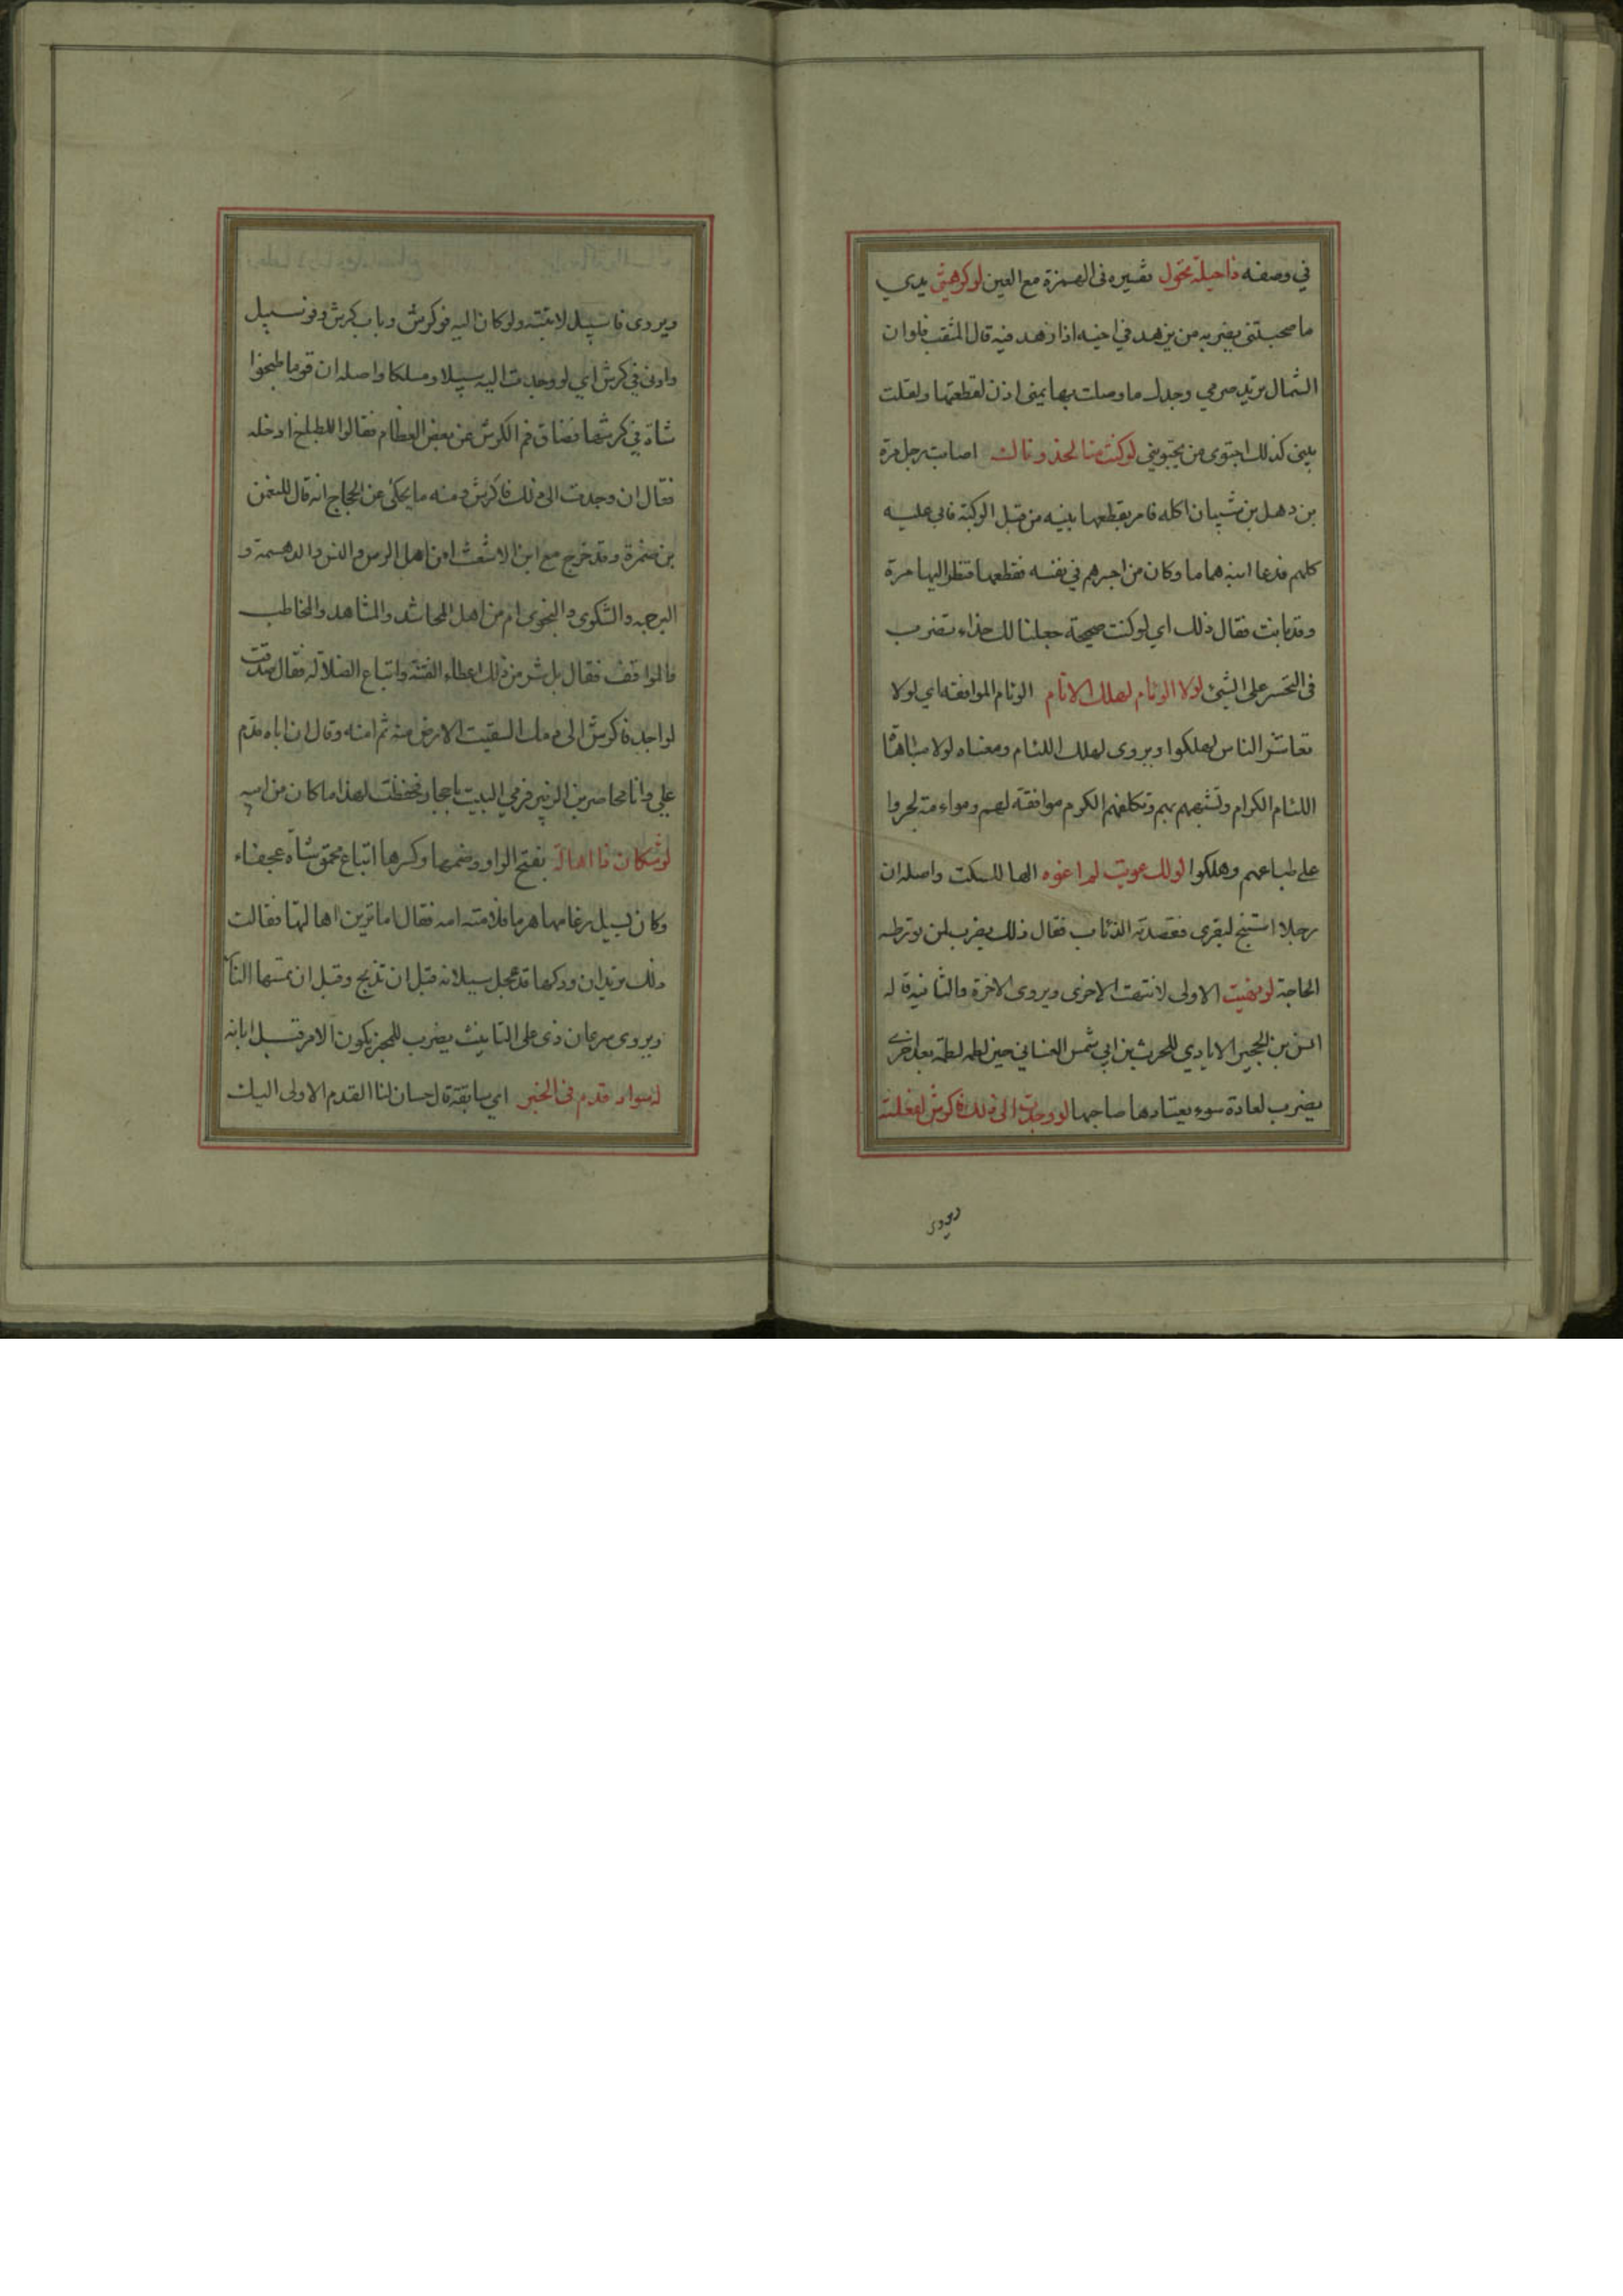 في وصفه ذا حيلة تحول تفسيره فى الهمزة مع العين لو كرهتنى يدي
ما صحبتنى يضربه من يزهد في اخيه اذا زهد فيه قال المثقب فلو ان
الشمال تريد صرمي وجدك ما وصلت بها يمينى اذن لقطعتها ولقلت
بيني كذلك اجتوى من يجتويني لو كنت منا لحذوناك اصابت رجل مرة
بن ذهل بن شيبان اكله فامر بقطعها بنيه من قبل الركبة فابى عليه
كلهم فدعا ابنه هماما وكان من اجسرهم في نفسه فقطعها فنظر اليها مرة
وقد بانت فقال ذلك اي لو كنت صحيحة جعلنا لك حذاء يضرب
فى التحسر على الشئ لولا الوئام لهلك الانام الوئام الموافقة اي لولا
تعاشر الناس لهلكوا ويروى لهلك اللئام ومعناه لولا
اللئام الكرام وتشبههم بهم وتكلفهم الكرم موافقة لهم ومواءمة لجروا
على طباعهم وهلكوا لو لك عويت لم اعوه الها للسكت واصله ان
رجلا استنبح ليقرى فقصدته الذئاب فقال ذلك يضرب لمن تورطه
الحاجة لو نهيت الاولى لانتهت الاخرى ويروى الاخرة والثانية قاله
انس بن الحجير الايادي للحرث بن ابي شمر الغساني حين لطمه لطمة بعد اخرى
يضرب لعادة سوء يعتادها صاحبها لو وجدت الى ذلك فاكرش لفعلته
ويروى
ويروى فا سبيل لاتيته ولو كان اليه فو كرش وباب كرش وفو سبيل
وادنى في كرش اي لو وجدت اليه سبيلا ومسلكا واصله ان قوما طبخوا
شاة في كرشها فضاق فم الكرش عن بعض العظام فقالوا للطباخ ادخله
فقال ان وجدت الى ذلك فا كرش ومنه ما يحكى عن الحجاج انه قال للنعمن
بن ضمرة وقد خرج مع ابن الاشعث امن اهل الرس والنس والدهمسة و
البرجمة والشكوى والنجوى ام من اهل المحاشد والمشاهد والمخاطب
والمواقف فقال بل شر من ذلك اعطاء الفتنة واتباع الضلالة فقال صدقت
لو اجد فا كرش الى دمك لسقيت الارض منه ثم امنه وقال ان اباه قدم
علي وانا محاصر بن الزبير فرمي البيت باحجار فحفظت لهذا ما كان من ابيه
لوشكان ذا اهالة بفتح الواو وضمها وكسرها ابتاع محمق شاة عجفاء
وكان يسيل رغامها هرما فلامته امه فقال اما ترين اهالتها فقالت
ذلك تريد ان ودكها قد عجل سيلانه قبل ان تذبح وقبل ان تمسها النار
ويروى سرعان ذى على التانيث يضرب للمخبر بكون الامر قبل ابانه
له سواد قدم فى الخير اي سابقة قال حسان لنا القدم الاولى اليك